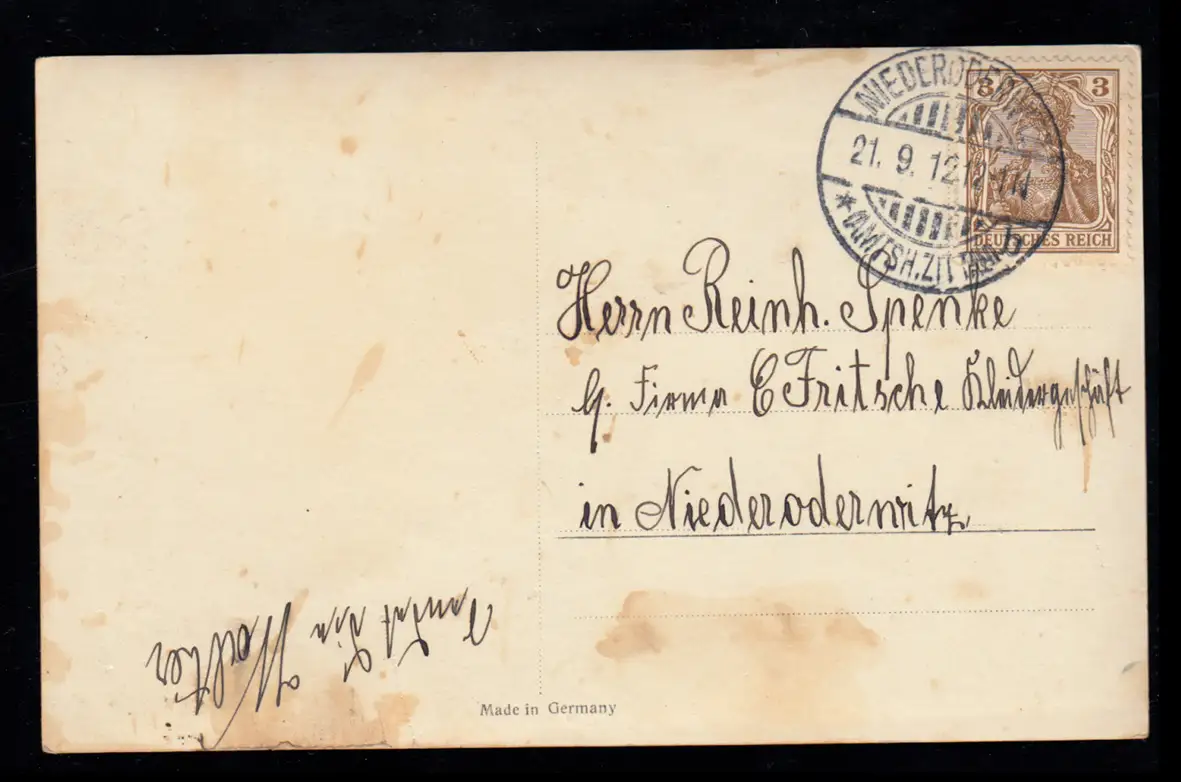 NIEDERODERW
21. 9. 12
* (AMTSH. ZITTAU) b
3 3
DEUTSCHES REICH
Herrn Reinh. Spenke
Firma E Fritsche Kleidergeschäft
in Niederoderwitz
Sendet dir
Walter
Made in Germany